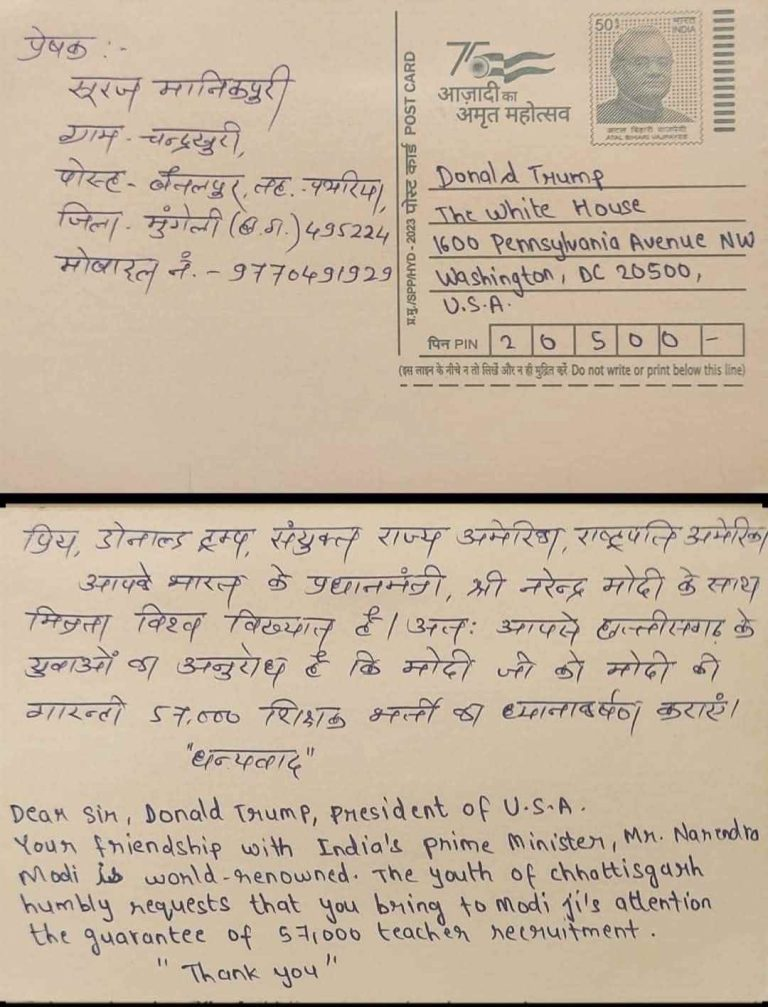 प्रेषक :-
सूरज मानिकपुरी
ग्राम - चन्द्रखुरी,
पोस्ट - बैतलपुर, तह. - पथरिया,
जिला - मुंगेली (छ.ग.) 495224
मोबाइल नं. - 9770491929
75
आज़ादी का
अमृत महोत्सव
50
भारत
INDIA
अटल बिहारी वाजपेयी
ATAL BIHARI VAJPAYEE
प्र.मु./SPP/HYD - 2023 पोस्ट कार्ड POST CARD
Donald Trump
The White House
1600 Pennsylvania Avenue NW
Washington, DC 20500,
U.S.A.
पिन PIN 2 0 5 0 0 -
(इस लाइन के नीचे न तो लिखें और न ही मुद्रित करें Do not write or print below this line)
प्रिय, डोनाल्ड ट्रम्प, संयुक्त राज्य अमेरिका, राष्ट्रपति अमेरिका
आपके भारत के प्रधानमंत्री, श्री नरेन्द्र मोदी के साथ
मित्रता विश्व विख्यात है। अतः आपसे छत्तीसगढ़ के
युवाओं का अनुरोध है कि मोदी जी को मोदी की
गारन्टी 57,000 शिक्षक भर्ती का ध्यानाकर्षण कराएं।
"धन्यवाद"
Dear Sir, Donald Trump, president of U.S.A.
Your friendship with India's prime Minister, Mr. Narendra
Modi is world-renowned. The youth of chhattisgarh
humbly requests that you bring to Modi ji's attention
the guarantee of 57,000 teacher recruitment.
"Thank you"